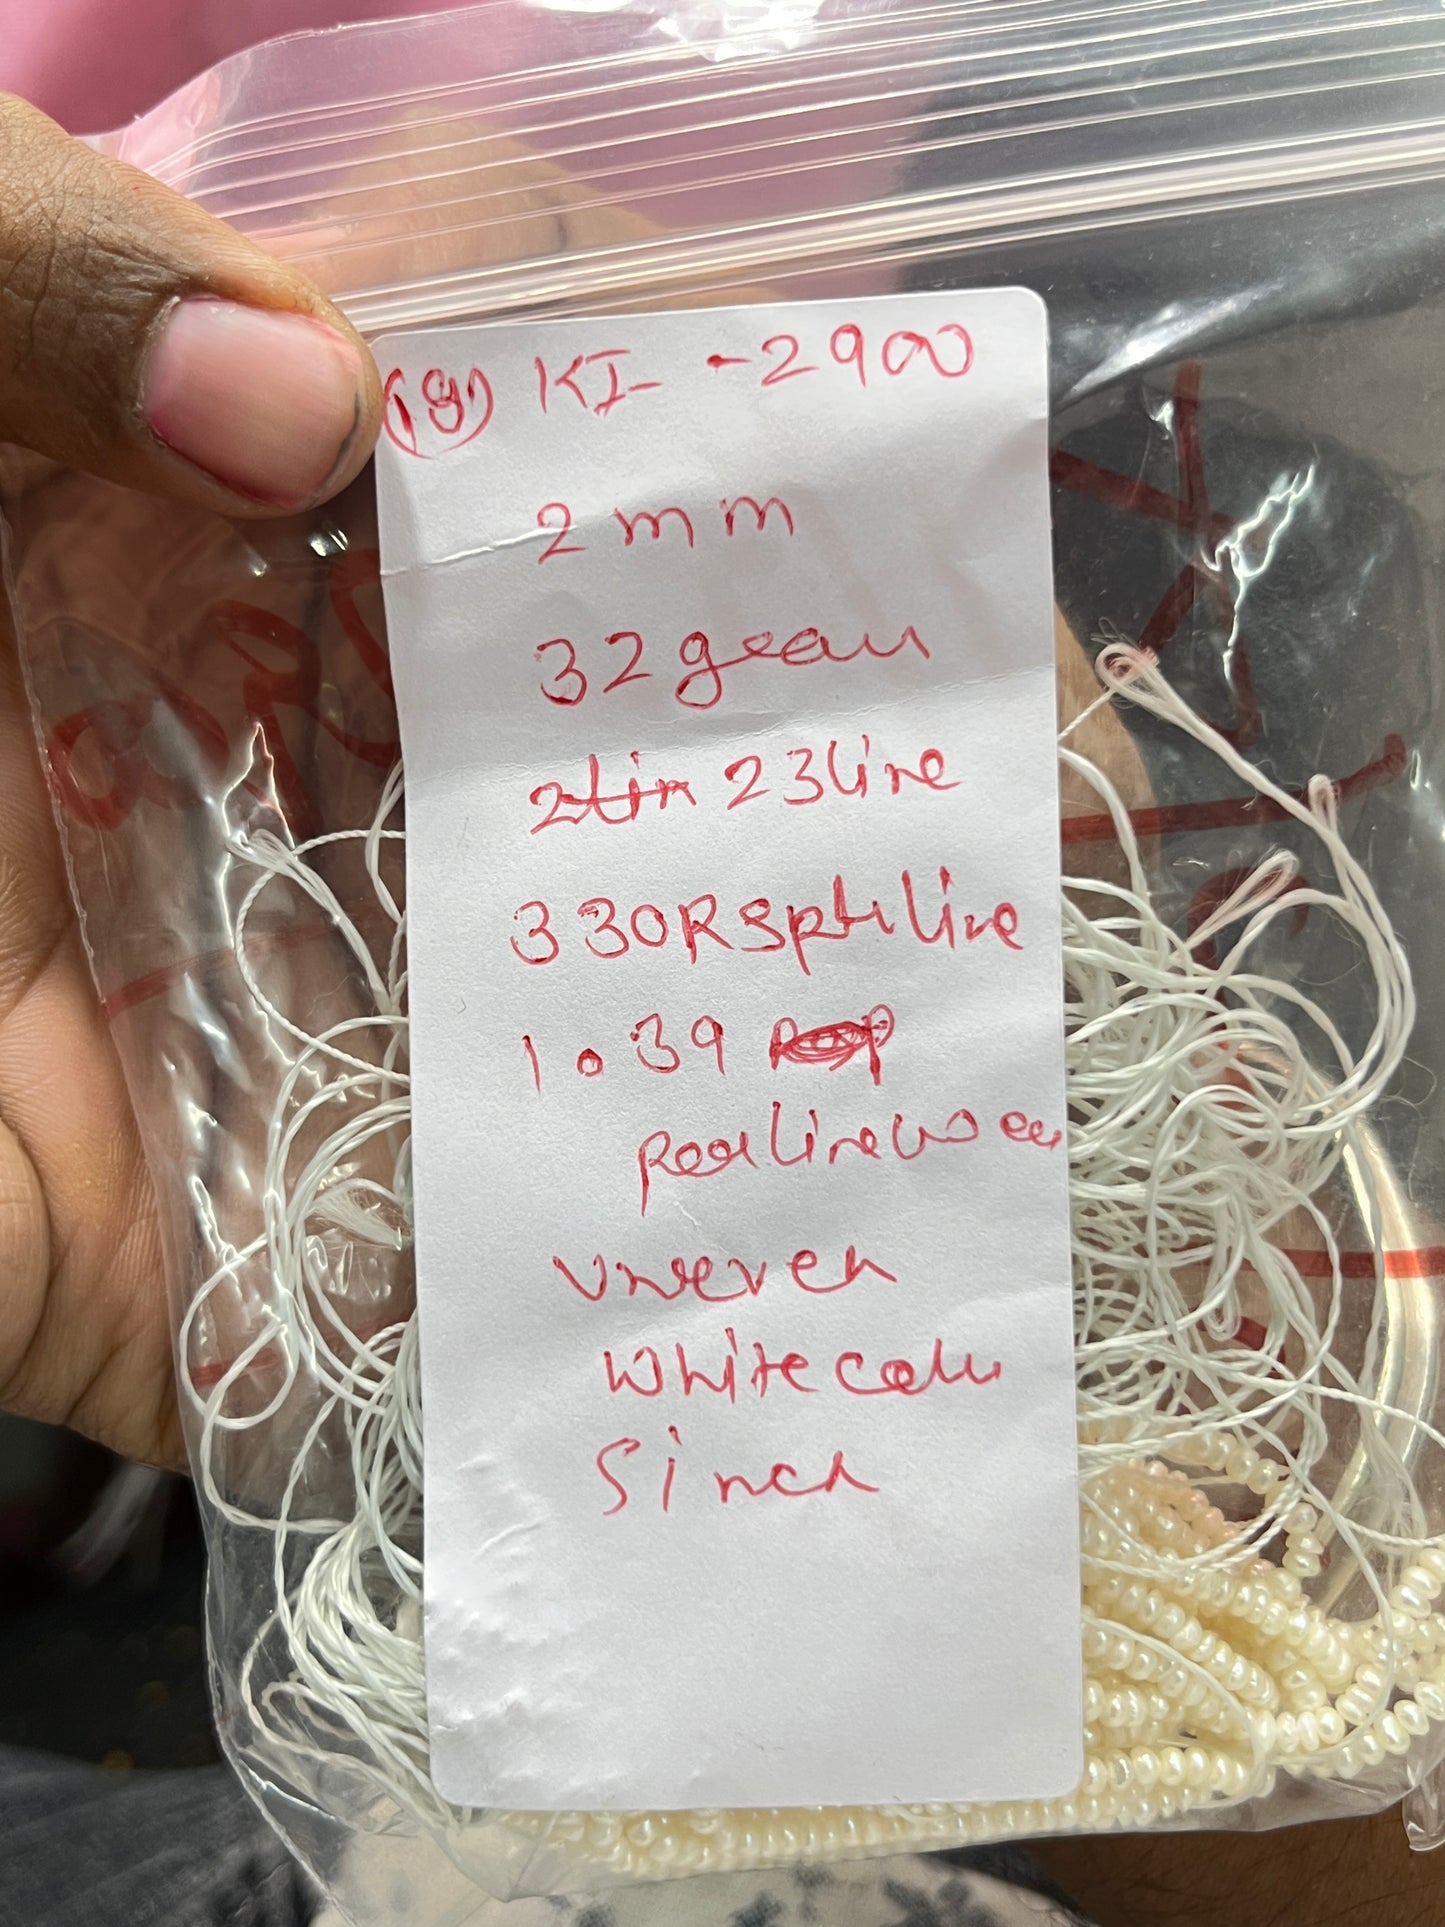 (18) KI - 2900
2 mm
32 gram
2lin 23 line
330 RS pti line
1.39
per line wea
Uneven
White colu
5 inch